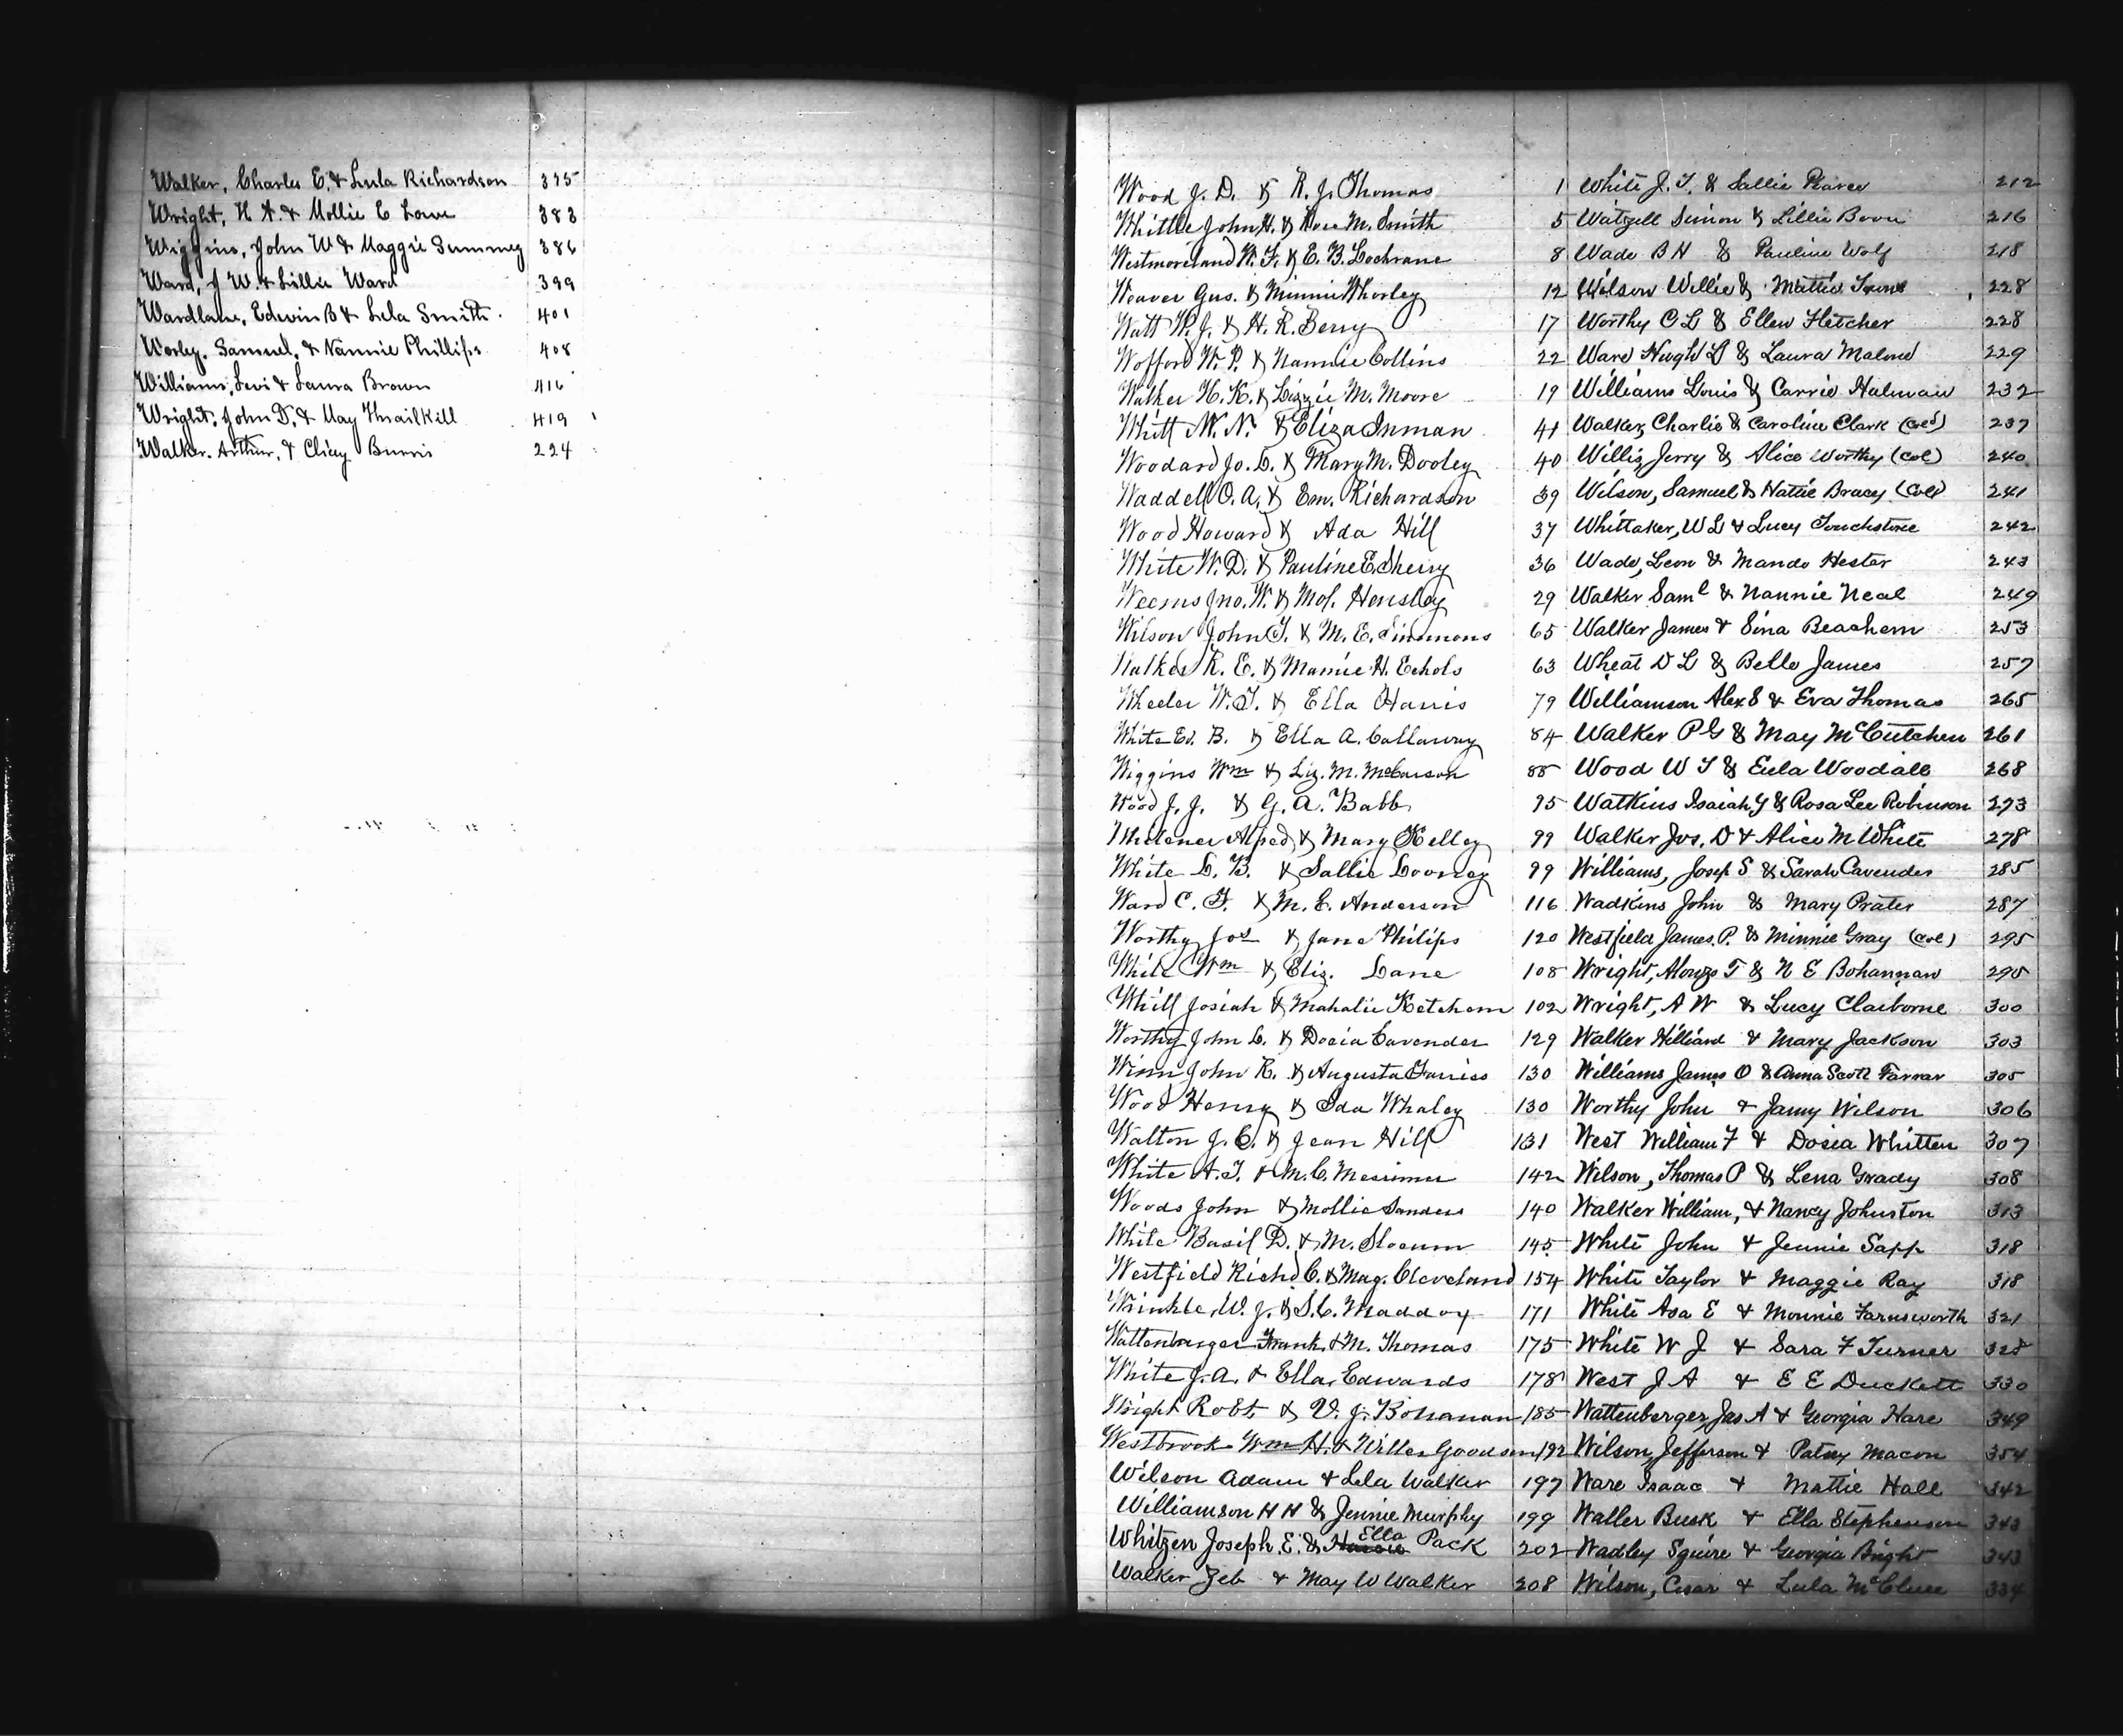 Walker, Charles E. & Lula Richardson 375
Wright, H A. & Mollie E Lowe 383
Wiggins, John W & Maggie Summey 386
Ward, J W. & Lillie Ward 399
Wardlaw, Edwin B & Lela Smith 401
Worley, Samuel, & Nannie Phillips 408
Williams, Levi & Laura Brown 416
Wright, John D. & May Thrailkill 419
Walker, Arthur, & Burris 224
Wood J. D. & R. J. Thomas 1
Whittle John H. & Rose M. Smith 5
Westmoreland W. F. & E. B. Cochrane 8
Weaver Gus. & Minnie Whorley 12
Watt W. J. & H. R. Berry 17
Wofford W. P. & Nannie Collins 22
Walker H. K. & Lizzie M. Moore 19
Whitt M. N. & Eliza Inman 41
Woodard Jo. L. & Mary M. Dooley 40
Waddell O. A. & Em. Richardson 39
Wood Howard & Ada Hill 37
White W. D. & Pauline E. Sherry 36
Weems Jno. W. & Mol. Hensley 29
Wilson John T. & M. E. Simmons 65
Walker R. E. & Mamie H. Echols 63
Wheeler W. T. & Ella Harris 79
White Ed. B. & Ella A. Callaway 84
Wiggins Wm & Liz. M. McCarson 88
Wood J. J. & G. A. Babb 95
Whitener Alped & Mary Kelley 99
White L. B. & Sallie Looney 99
Ward C. F. & M. E. Anderson 116
Worthy Jos & Jane Philips 120
White Wm & Eliz. Lane 108
Whitt Josiah & Mahalie Ketchem 102
Worthy John L. & Docia Cavender 129
Winn John R. & Augusta Farriss 130
Wood Henry & Ida Whaley 130
Walton J. C. & Jean Hill 131
White A. T. & M. C. Messimer 142
Woods John & Mollie Sanders 140
White Basil D. & M. Slocum 145
Westfield Richd C. & Mag. Cleveland 154
Wrinkle, W. J. & S. C. Maddox 171
Wattenbarger Frank & M. Thomas 175
White J. A. & Ella Edwards 178
Wright Robt. & V. J. Bohanan 185
Westbrook Wm H. & Willer Goodson 192
Wilson Adam & Lela Walker 197
Williamson H H & Jennie Murphy 199
Whitzen Joseph. E. & Ella Pack 202
Walker Zeb & May W Walker 208
White J. T. & Sallie Pearce 212
Watzell Simon & Lillie Boon 216
Wade B H & Pauline Wolf 218
Wilson Willie & Mattie 228
Worthy C L & Ellen Fletcher 228
Ware Hugh L & Laura Malone 229
Williams Louis & Carrie Halman 232
Walker, Charlie & Caroline Clark (Cold) 237
Willis, Jerry & Alice Worthy (Col) 240
Wilson, Samuel & Hattie Bracy (Col) 241
Whittaker, W L & Lucy Touchstone 242
Wade, Leon & Mando Hester 243
Walker Saml & Nannie Neal 249
Walker James & Sina Beachem 253
Wheat D L & Belle James 257
Williamson Alex S & Eva Thomas 265
Walker P G & May McCutchen 261
Wood W T & Eula Woodall 268
Watkins Isaiah Y & Rosa Lee Robinson 273
Walker Jos. D & Alice M White 278
Williams, Josep S & Sarah Cavender 285
Wadkins John & Mary Prater 287
Westfield James. P. & Minnie Gray (Col) 295
Wright, Alonzo T & N E Bohannan 295
Wright, A W & Lucy Claiborne 300
Walker Hilliard & Mary Jackson 303
Williams James O & Anna Scott Farrar 305
Worthy John & Jamy Wilson 306
West William F & Dosia Whitten 307
Wilson, Thomas P & Lena Grady 308
Walker William, & Nancy Johnston 313
White John & Jennie Sapp 318
White Taylor & Maggie Ray 318
White Asa E & Monnie Farnsworth 321
White W J & Sara F Turner 328
West J A & E E Duckett 330
Wattenberger, Jas A & Georgia Hare 349
Wilson, Jefferson & Patsy Macon 354
Ware Isaac & Mattie Hall 342
Waller Busk & Ella Stephenson 343
Wadley Squire & Georgia Bright 343
Wilson, Cesar & Lula McClure 334